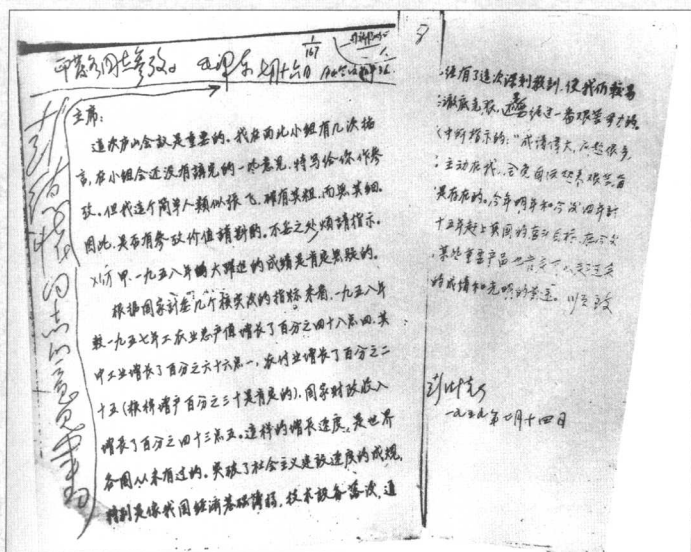 印发各同志参考。 毛泽东 七月十六日
1/167
8
彭德怀同志的意见书
主席:
这次庐山会议是重要的。我在西北小组有几次插
言,在小组会还没有讲完的一些意见,特写给你作参
考。但我这个简单人类似张飞,确有其粗,而无其细。
因此,是否有参考价值请斟酌。不妥之处,烦请指示。
甲、一九五八年大跃进的成绩是肯定无疑的。
根据国家计委几个核实后的指标来看,一九五八年
较一九五七年工农业总产值增长了百分之四十八点四,其
中工业增长了百分之六十六点一,农付业增长了百分之二
十五(粮棉增产百分之三十是肯定的),国家财政收入
增长了百分之四十三点五。这样的增长速度,是世界
各国从未有过的。突破了社会主义建设速度的成规,
特别是像我国经济基础薄弱,技术设备落后,通
经有了这次深刻教训,使我们较易
澈底克服,还要经过一番艰苦努力的。
中所指示的:"成绩伟大,问题很多,
是存在的。今年明年和今后四年计
十五年赶上英国的 目标,在今后
某些重要产品也肯定可以
的成绩和光明的前途。 致
彭德怀
一九五九年七月十四日